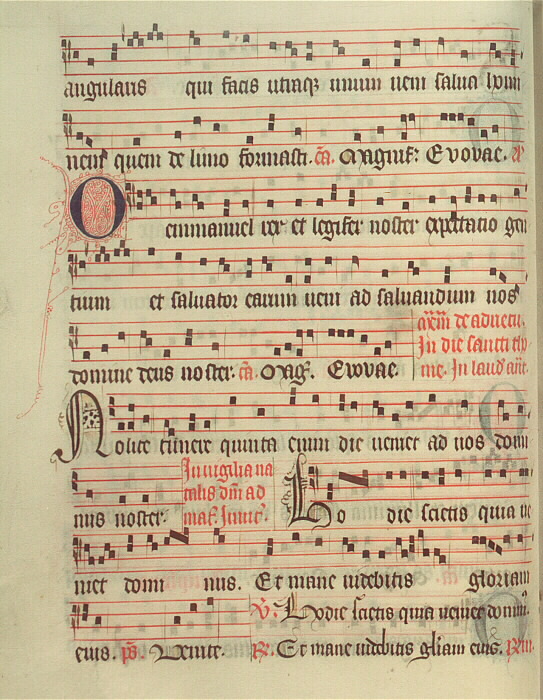 angularis qui facis utraqꝫ unum veni salva homi
nem quem de limo formasti. ca. Magnif: Evovae.
O emmanuel rex et legifer noster expectatio gen
tium et salvator earum veni ad salvandum nos
domine deus noster. ca. Mag. Evovae.
In die sancti tho
me. In laud
Nolite timere quinta enim die veniet ad vos domi
nus noster.
In vigilia na
talis dm ad
Hodie scietis quia ve
niet dominus. Et mane videbitis gloriam
eius. ps. Venite. V. Hodie scietis quia veniet domin.
R. Et mane videbitis gliam eius.